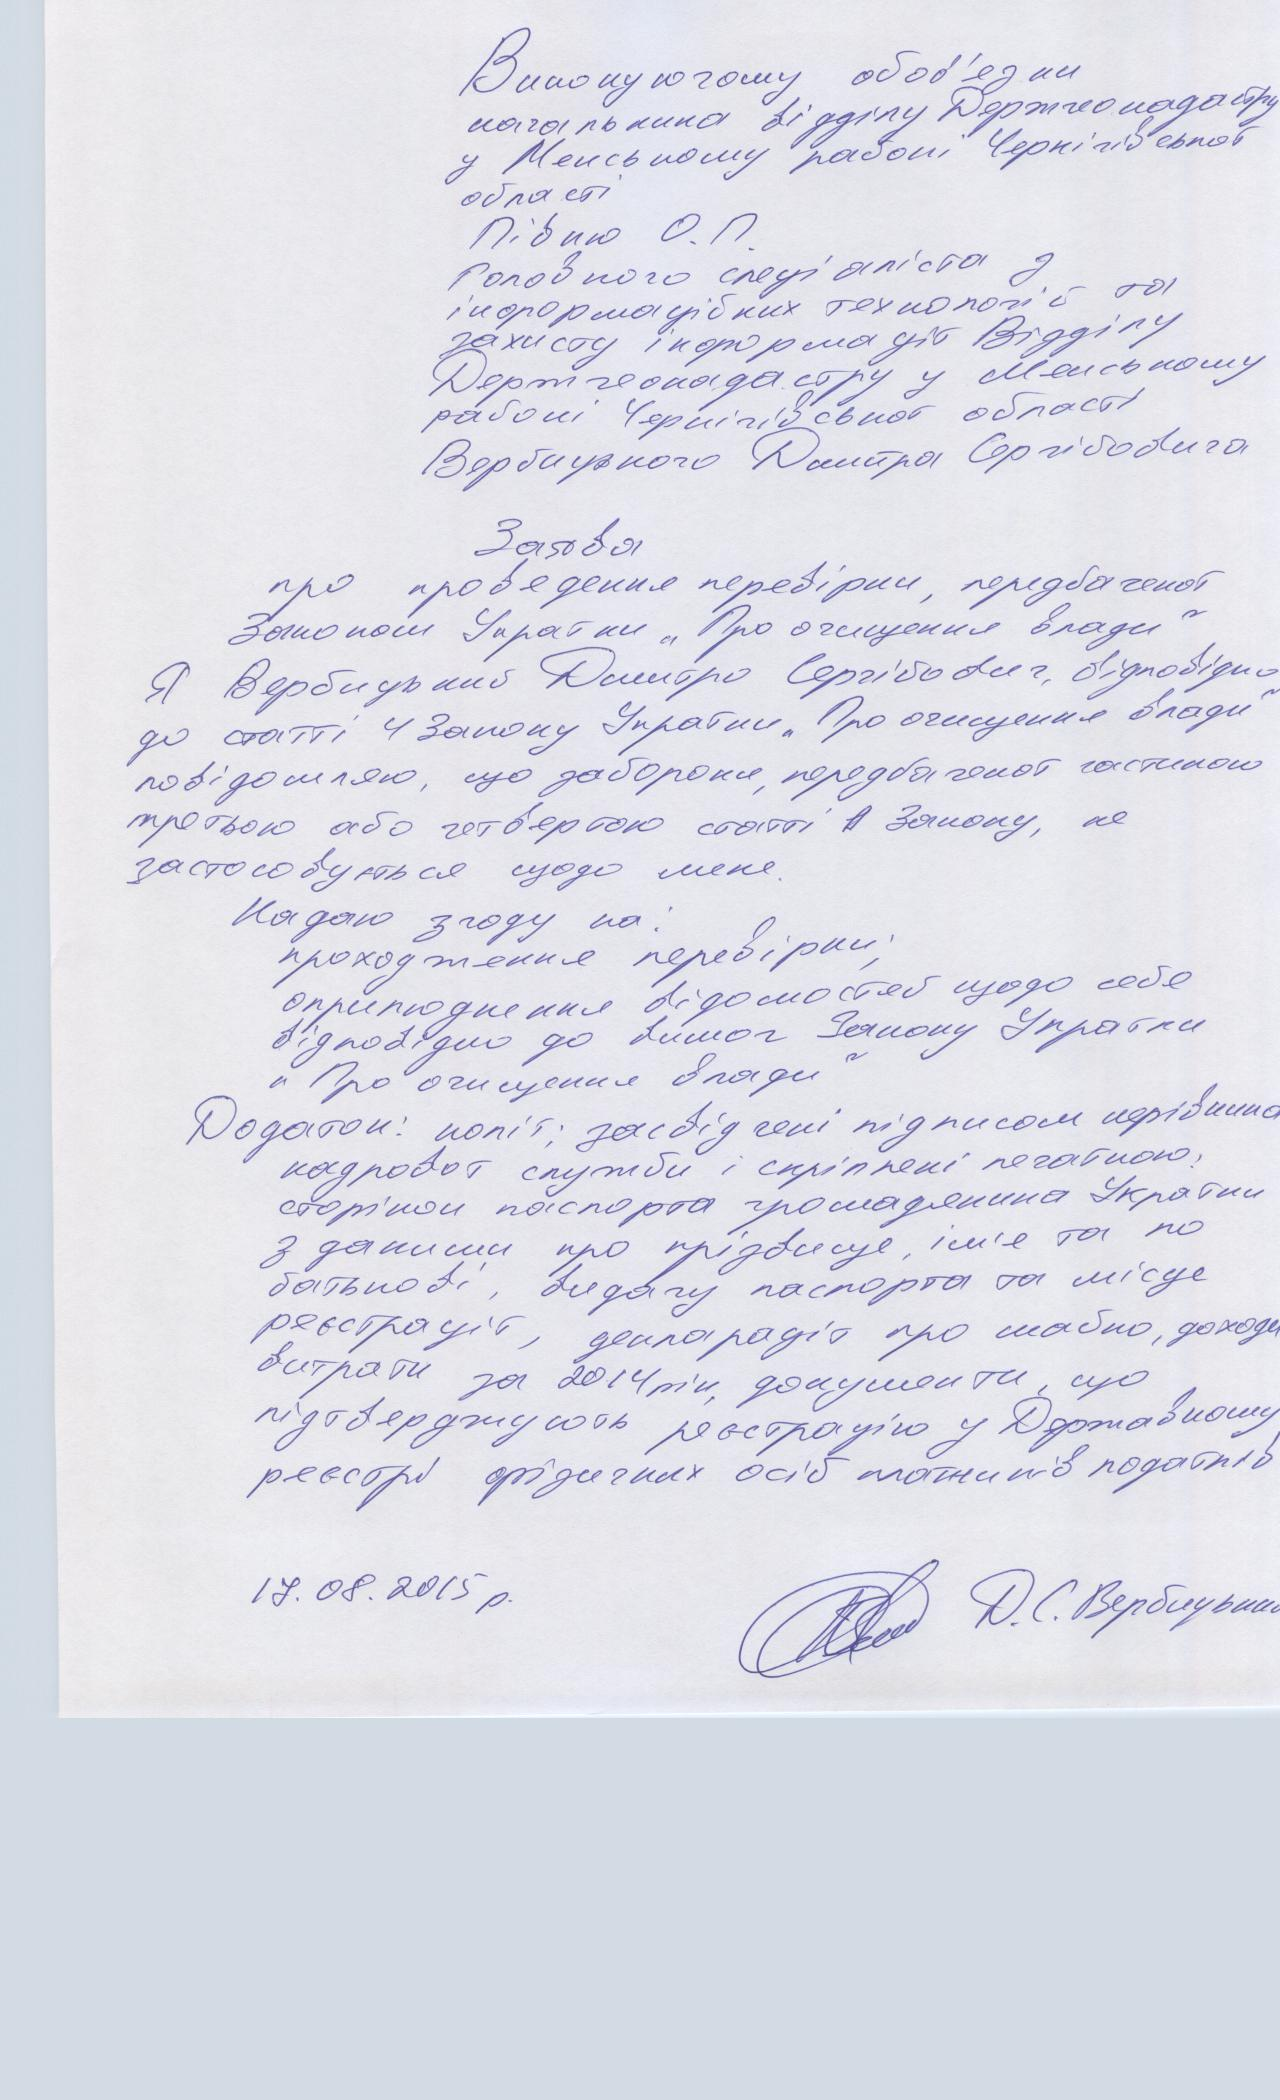 Виконуючому обов'язки
начальника відділу Держгеокадастру
у Менському районі Чернігівської
області
Півню О.П.
Головного спеціаліста з
інформаційних технологій та
захисту інформації Відділу
Держгеокадастру у Менському
районі Чернігівської області
Вербицького Дмитра Сергійовича
Заява
про проведення перевірки, передбаченої
Законом України „Про очищення влади"
Я Вербицький Дмитро Сергійович, відповідно
до статті 4 Закону України „Про очищення влади"
повідомляю, що заборони, передбаченої частиною
третьою або четвертою статті 1 Закону, не
застосовується щодо мене.
Надаю згоду на:
проходження перевірки;
оприлюднення відомостей щодо себе
відповідно до вимог Закону України
„Про очищення влади"
Додаток: копії; засвідчені підписом керівника
кадрової служби і скріплені печаткою:
сторінок паспорта громадянина України
з даними про прізвище, ім'я та по
батькові, видачу паспорта та місце
реєстрації, декларації про майно, доходи
витрати за 2014 рік, документи, що
підтверджують реєстрацію у Державному
реєстрі фізичних осіб платників податків
17.08.2015 р. Д.С. Вербицький